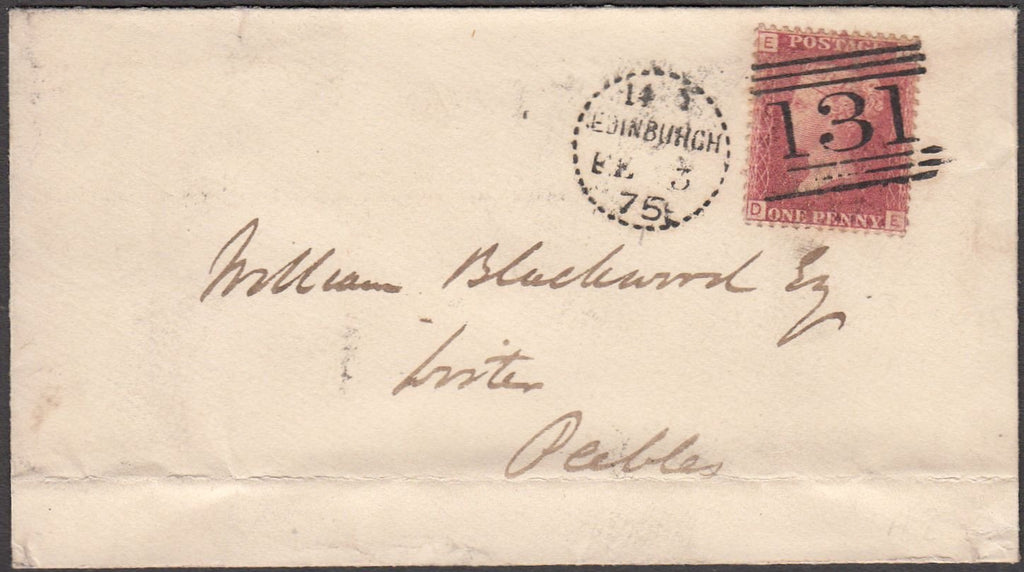 E POSTAGE
131
D ONE PENNY E
14 5
EDINBURGH
FE 3
75
William Blackwood Esq
Peebles